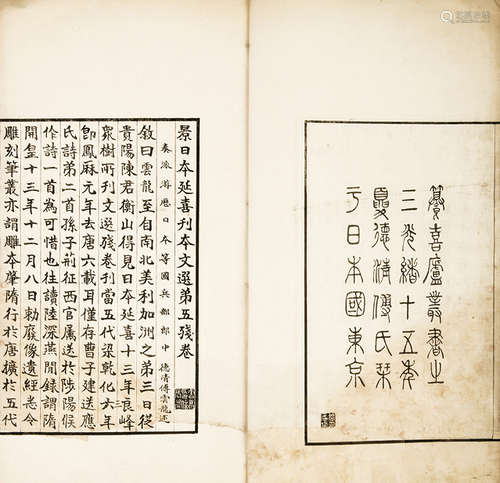 籑喜廬叢書之
三光緒十五年
夏德清傅氏栞
于日本國東京
景日本延喜刊本文選第五殘卷
奏派游歷日本等國兵部郎中 德清傅雲龍述
敘曰雲龍至自南北美利加洲之第三日從
貴陽陳君衡山得見日本延喜十三年良峰
眾樹所刊文選殘卷刊當五代梁乾化六年
卽鳳厤元年去唐六載耳僅存曹子建送應
氏詩第二首孫子荊征西官屬送於陟陽候
作詩一首為可惜也往讀陸深燕閒錄謂隋
開皇十三年十二月八日勅廢像遺經悉令
雕刻筆叢亦謂雕本肇隋行於唐擴於五代